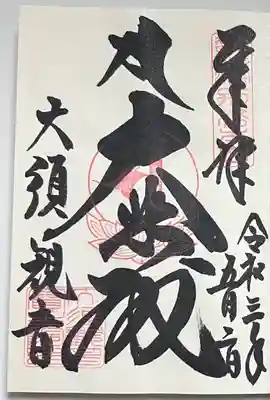 奉拝
令和三年五月
大悲殿
大須観音